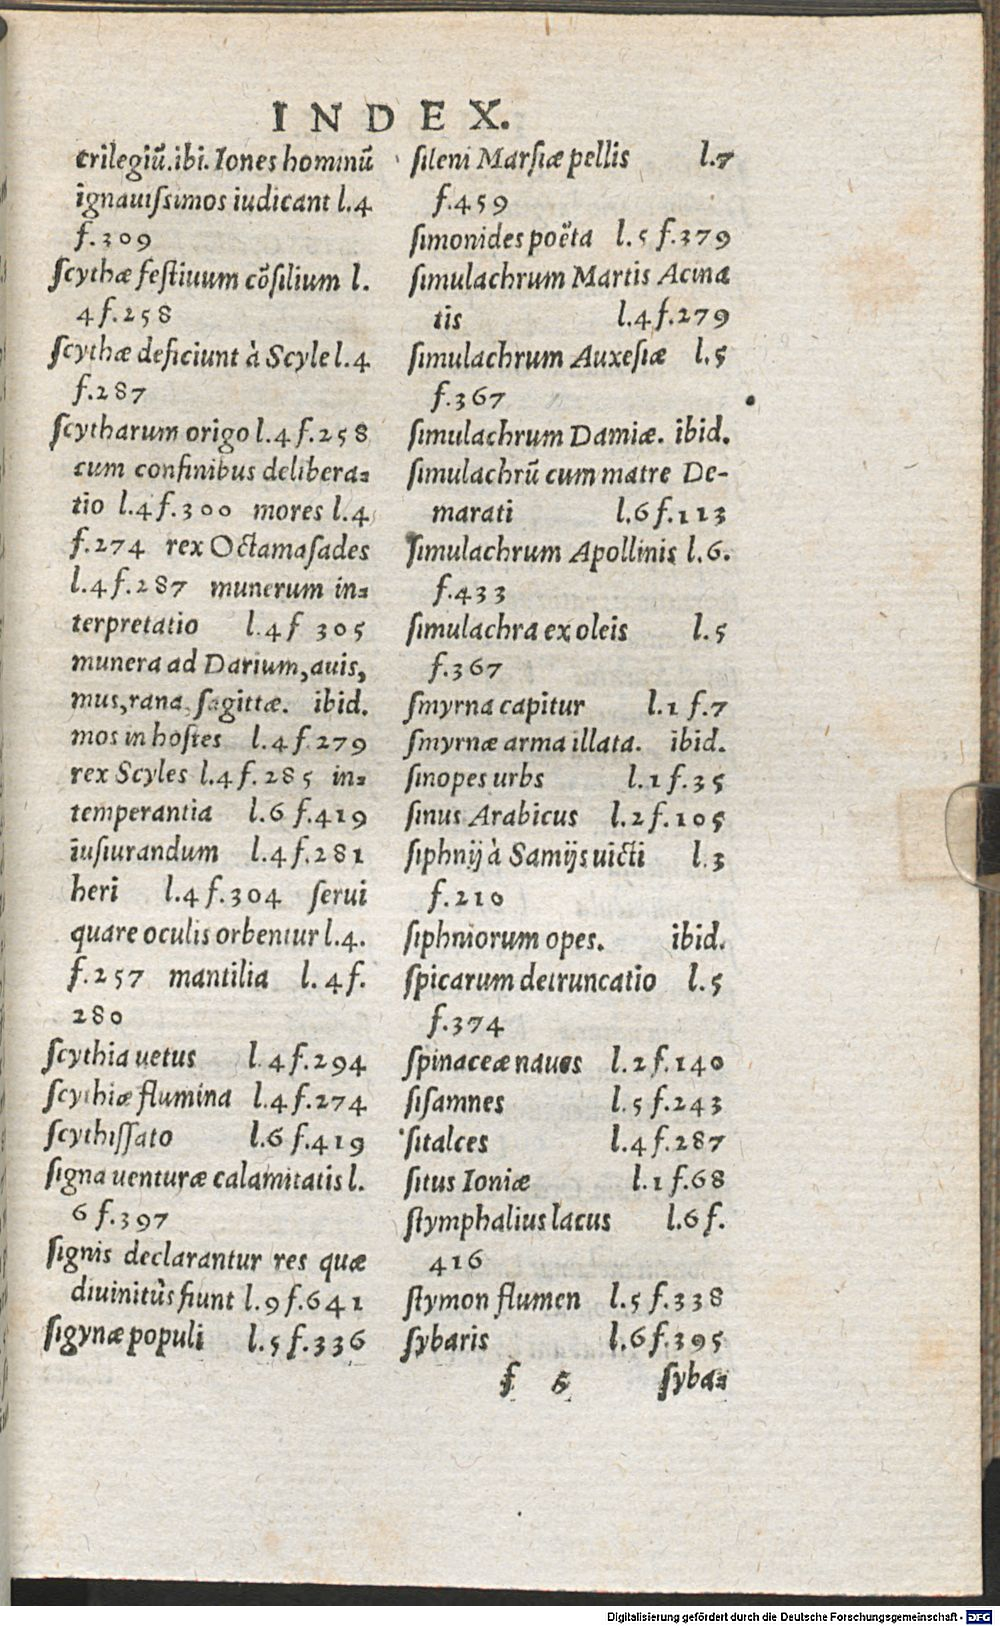 INDEX.
crilegiū.ibi. Iones hominū
ignauissimos iudicant l.4
f.309
ſcythæ feſtiuum cōſilium l.
4 f.258
ſcythæ deficiunt à Scyle l.4
f.287
ſcytharum origo l.4 f.258
cum confinibus delibera=
tio l.4 f.300 mores l.4
f.274 rex Octamaſades
l.4 f.287 munerum in=
terpretatio l.4 f 305
munera ad Darium, auis,
mus, rana, ſagittæ. ibid.
mos in hoſtes l.4 f.279
rex Scyles l.4 f.285 in=
temperantia l.6 f.419
iuſiurandum l.4 f.281
heri l.4 f.304 ſerui
quare oculis orbentur l.4.
f.257 mantilia l.4 f.
280
ſcythia uetus l.4 f.294
ſcythiæ flumina l.4 f.274
ſcythiſſato l.6 f.419
ſigna uenturæ calamitatis l.
6 f.397
ſignis declarantur res quæ
diuinitùs fiunt l.9 f.641
ſigynæ populi l.5 f.336
ſileni Marſiæ pellis l.7
f.459
ſimonides poëta l.5 f.379
ſimulachrum Martis Acina
tis l.4 f.279
ſimulachrum Auxeſiæ l.5
f.367
ſimulachrum Damiæ. ibid.
ſimulachrū cum matre De-
marati l.6 f.113
ſimulachrum Apollinis l.6.
f.433
ſimulachra ex oleis l.5
f.367
ſmyrna capitur l.1 f.7
ſmyrnæ arma illata. ibid.
ſinopes urbs l.1 f.35
ſinus Arabicus l.2 f.105
ſiphnij à Samijs uicti l.3
f.210
ſiphniorum opes. ibid.
ſpicarum detruncatio l.5
f.374
ſpinaceæ naues l.2 f.140
ſiſamnes l.5 f.243
ſitalces l.4 f.287
ſitus Ioniæ l.1 f.68
ſtymphalius lacus l.6 f.
416
ſtymon flumen l.5 f.338
ſybaris l.6 f.395
f 5 ſyba=
Digitalisierung gefördert durch die Deutsche Forschungsgemeinschaft - DFG